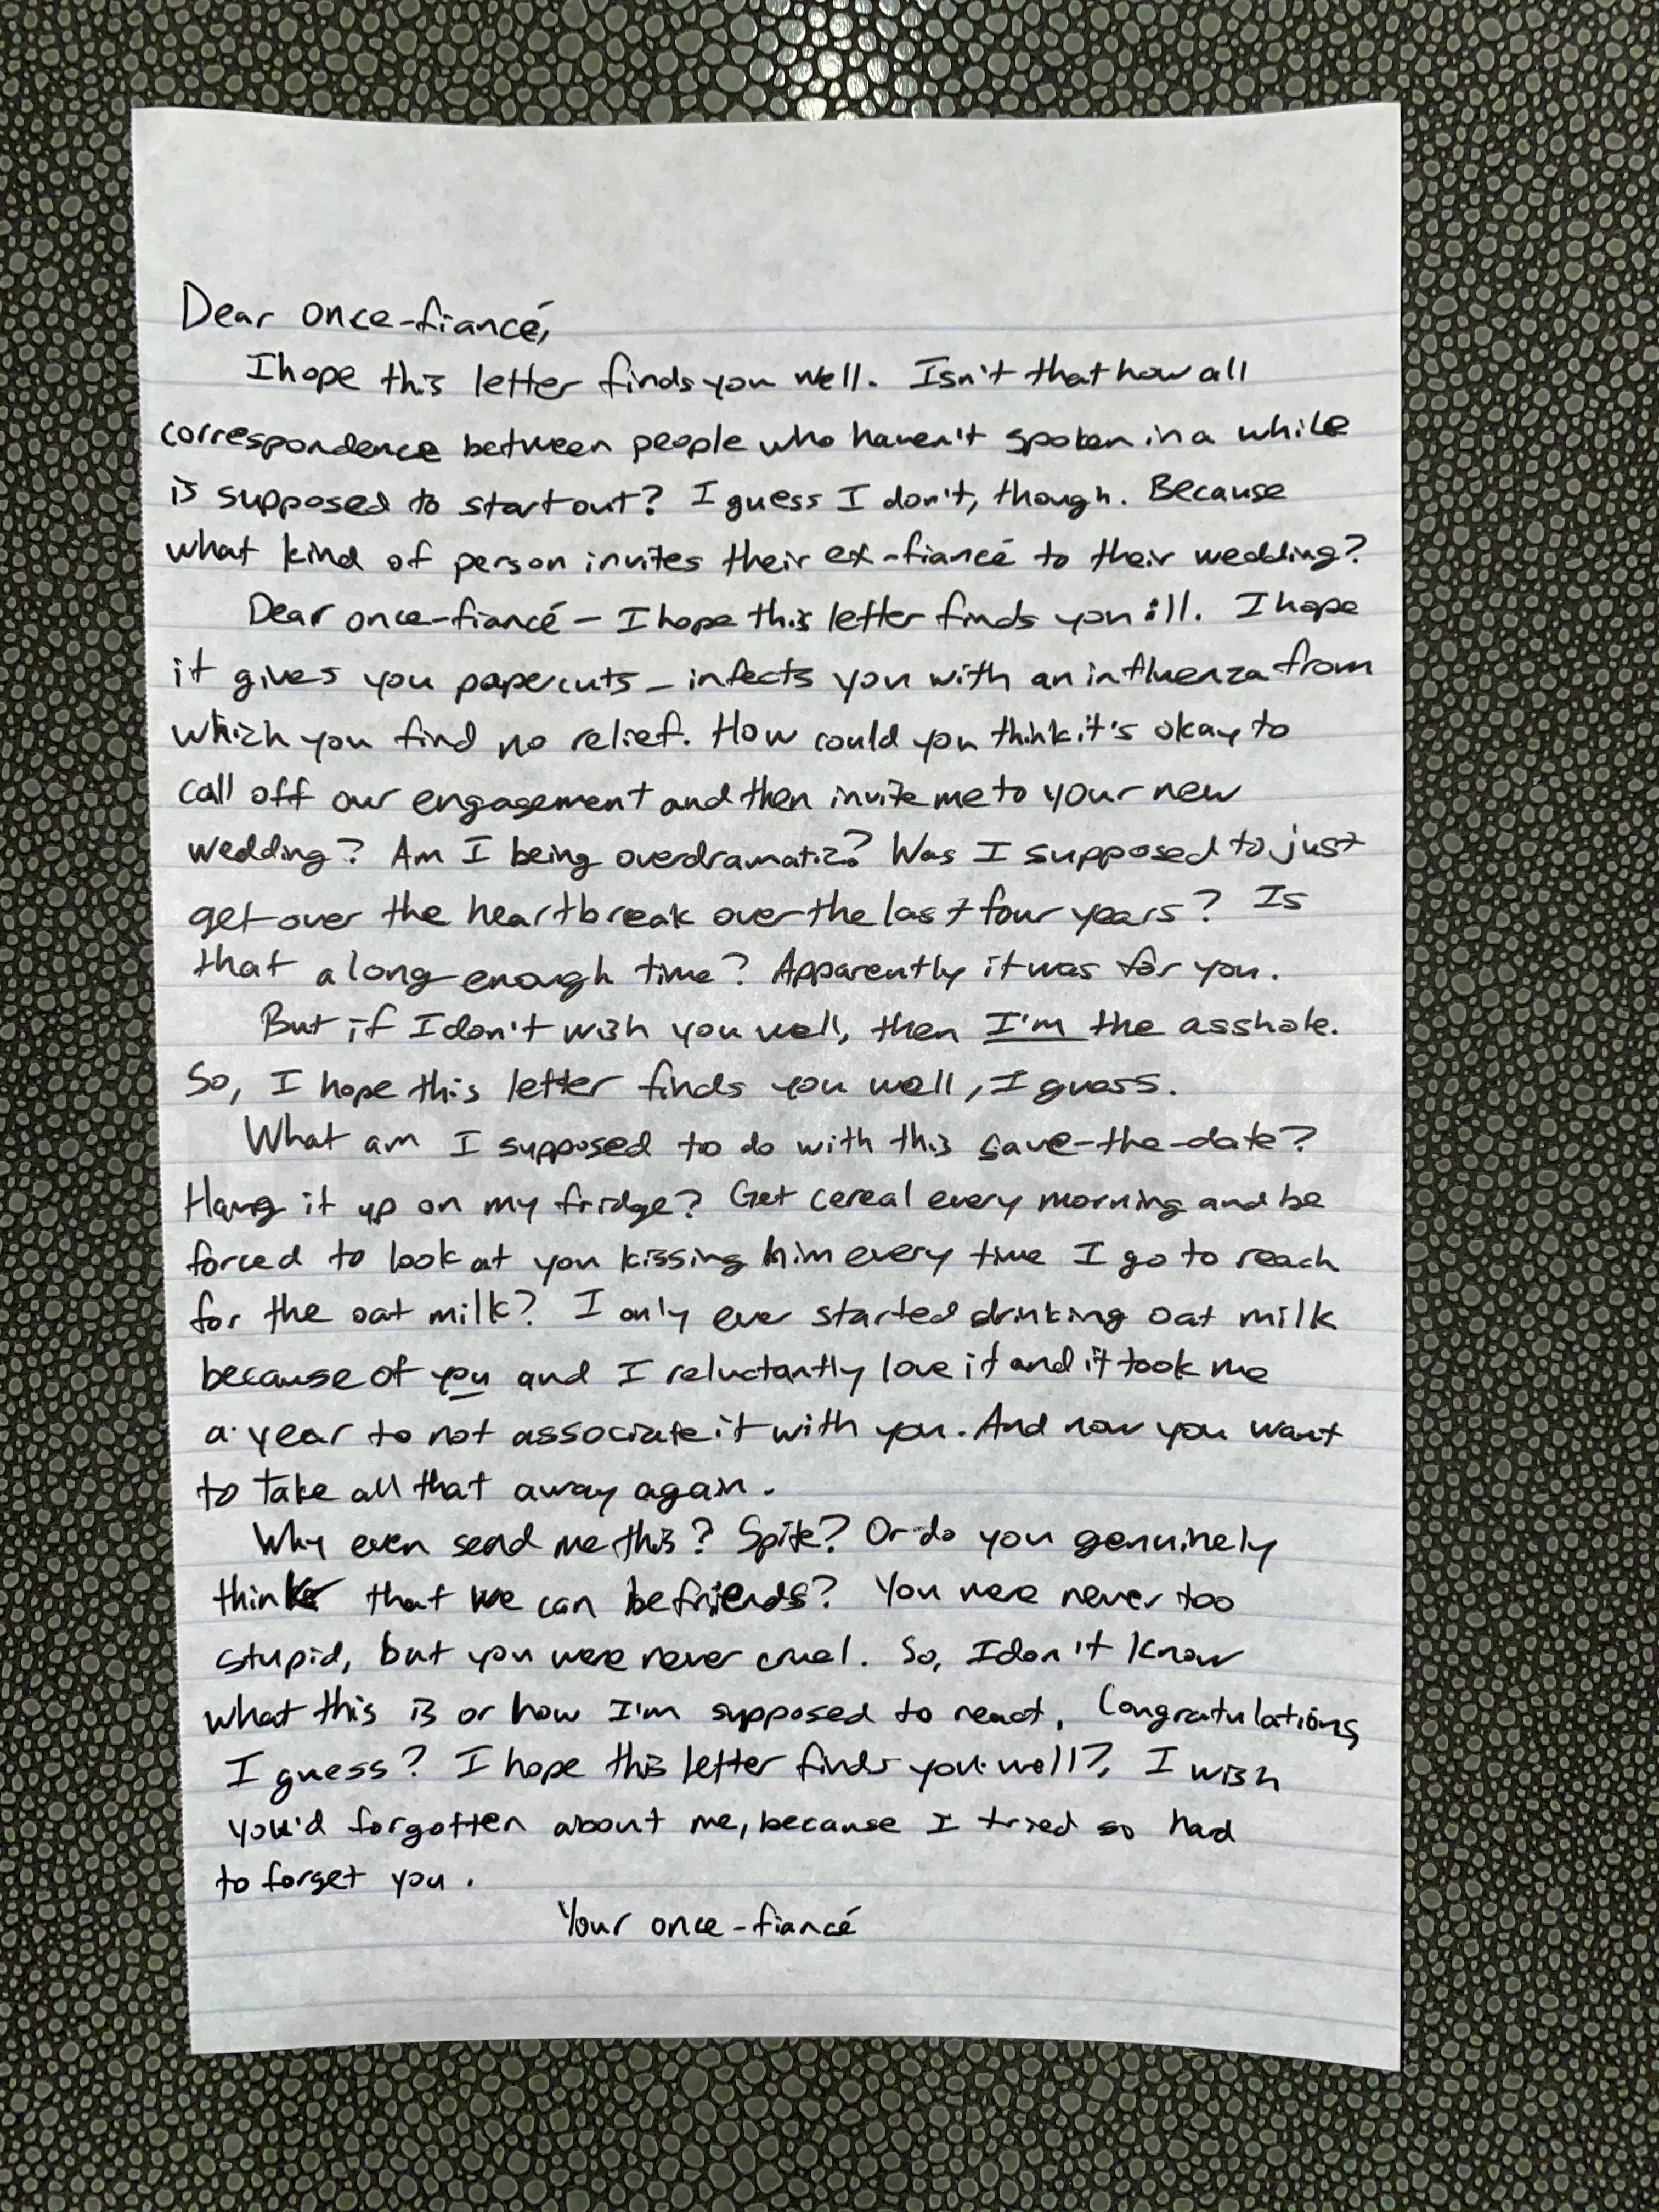 Dear once-fiancé,
I hope this letter finds you well. Isn't that how all
correspondence between people who haven't spoken in a while
is supposed to start out? I guess I don't, though. Because
what kind of person invites their ex-fiancé to their wedding?
Dear once-fiancé - I hope this letter finds you ill. I hope
it gives you papercuts - infects you with an influenza from
which you find no relief. How could you think it's okay to
call off our engagement and then invite me to your new
wedding? Am I being overdramatic? Was I supposed to just
get over the heartbreak over the last four years? Is
that a long enough time? Apparently it was for you.
But if I don't wish you well, then I'm the asshole.
So, I hope this letter finds you well, I guess.
What am I supposed to do with this save-the-date?
Hang it up on my fridge? Get cereal every morning and be
forced to look at you kissing him every time I go to reach
for the oat milk? I only ever started drinking oat milk
because of you and I reluctantly love it and it took me
a year to not associate it with you. And now you want
to take all that away again.
Why even send me this? Spite? Or do you genuinely
think that we can be friends? You were never too
stupid, but you were never cruel. So, I don't know
what this is or how I'm supposed to react. Congratulations,
I guess? I hope this letter finds you well? I wish
you'd forgotten about me, because I tried so had
to forget you.
Your once-fiancé